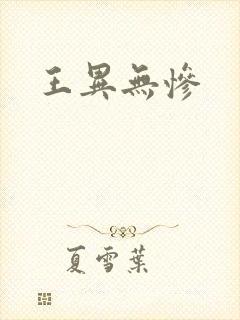 王異無慘
夏雪葉